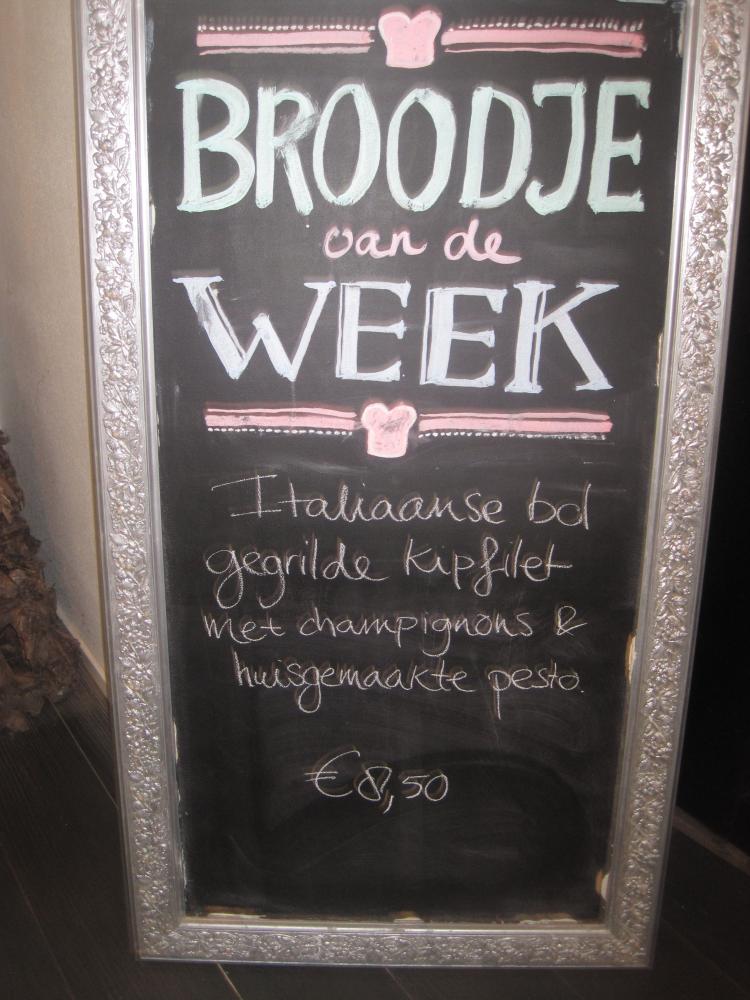 BROODJE
van de
WEEK
Italiaanse bol
gegrilde kipfilet
met champignons &
huisgemaakte pesto.
€8,50